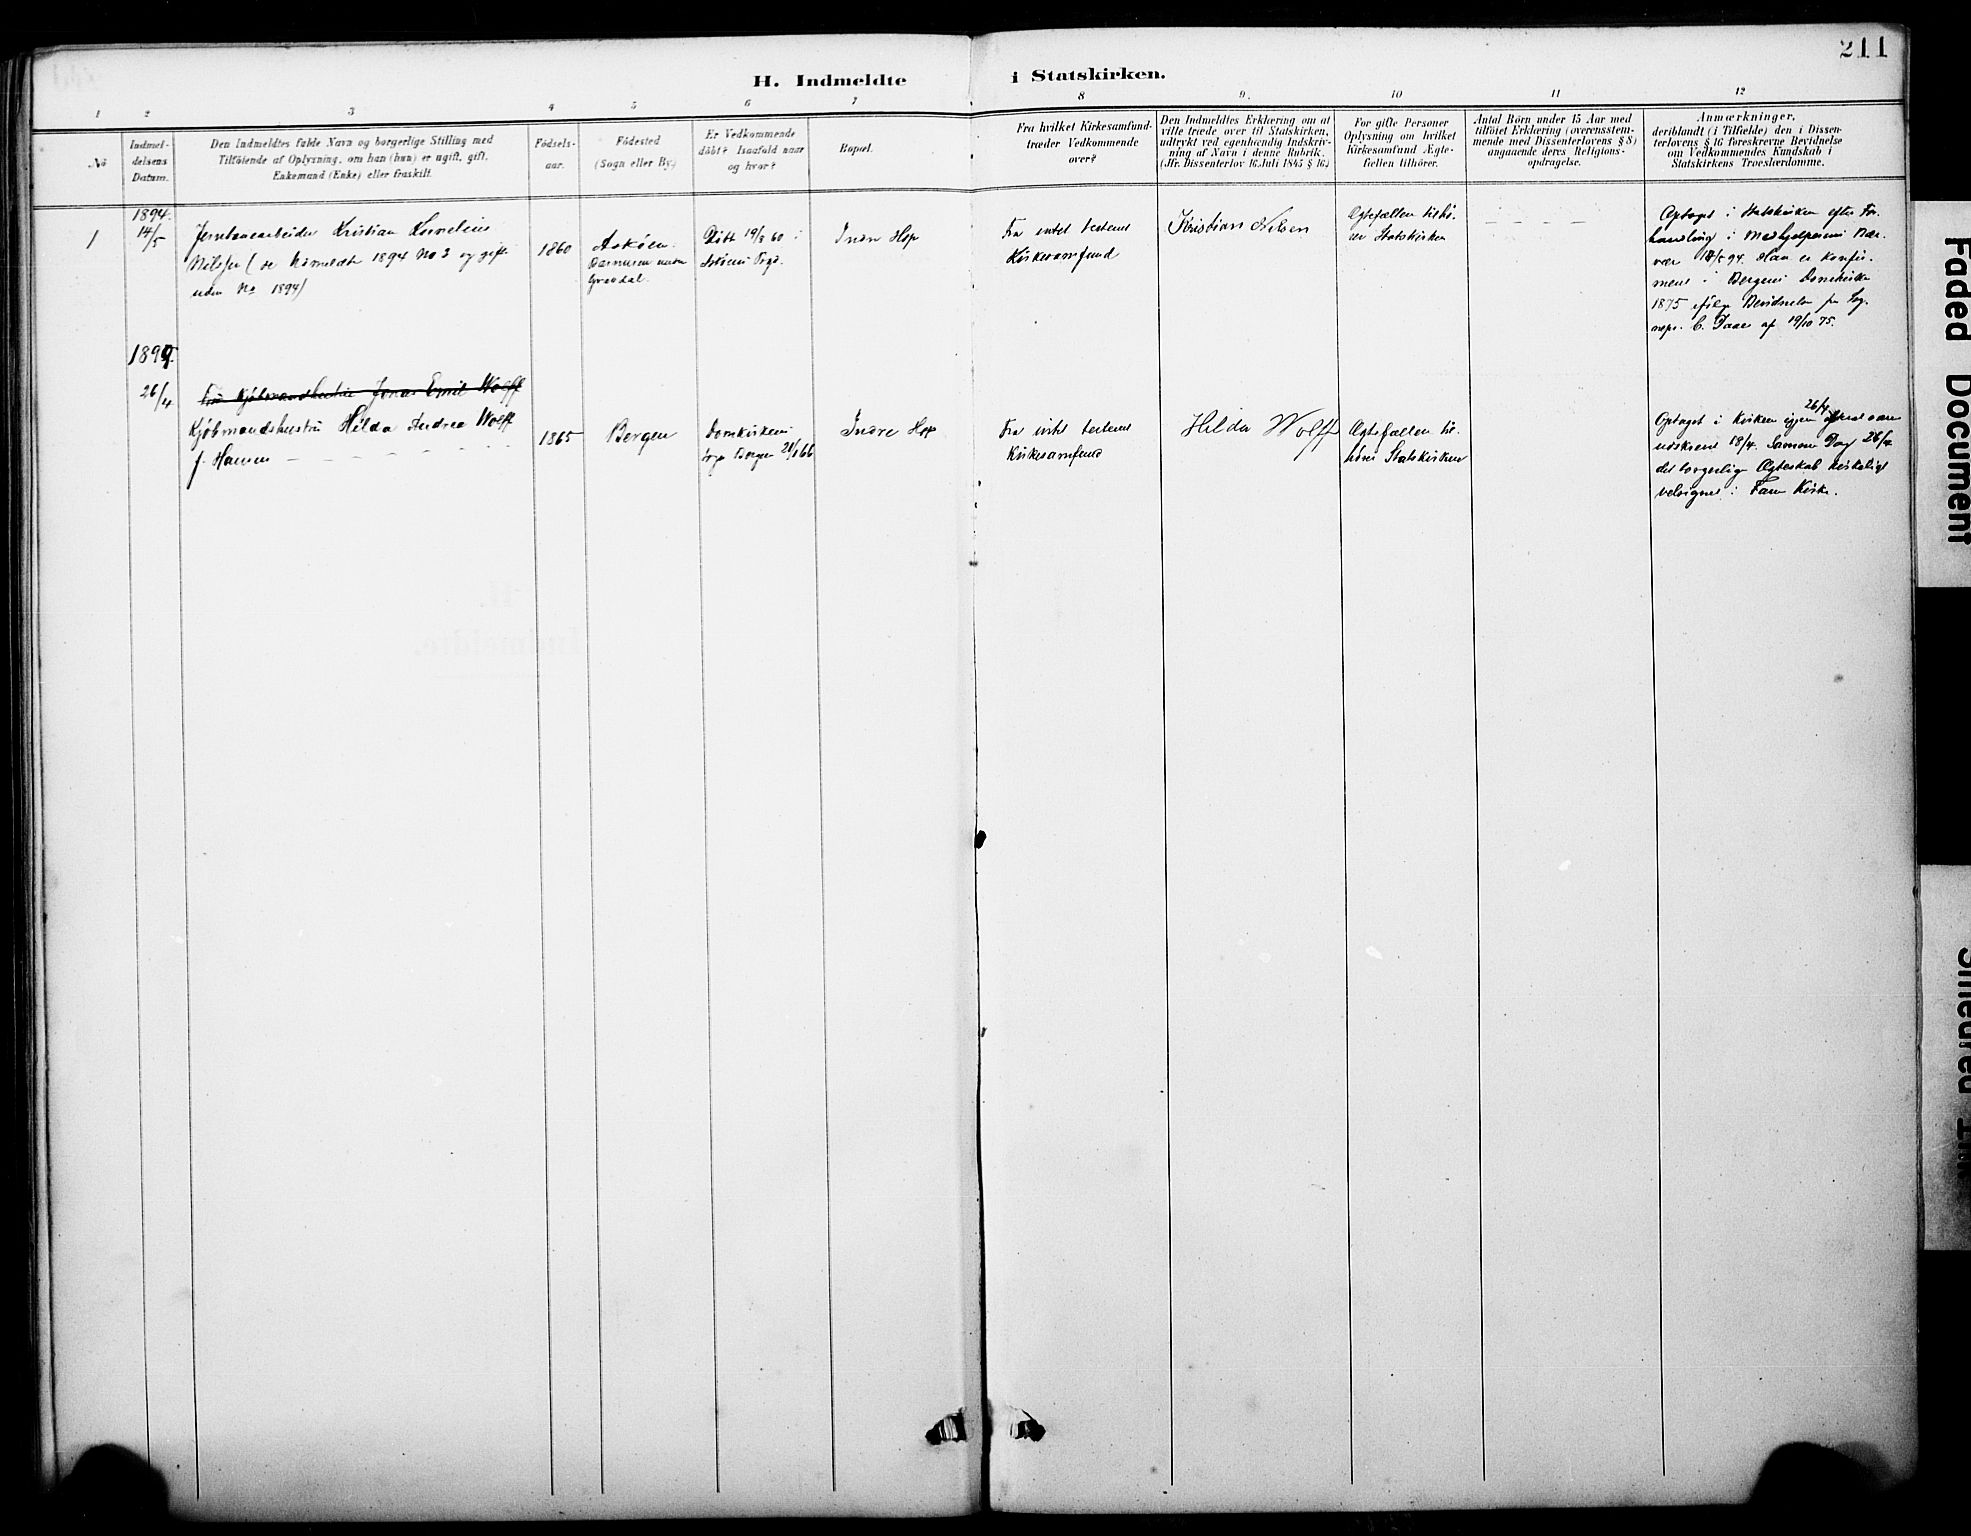 211
H. Indmeldte i Statskirken.
1 2 3 4 5 6 7 8 9. 10 11 12
No
Indmel-
delsens
Datum.
Den Indmeldtes fulde Navn og borgerlige Stilling med
Tilföiende af Oplysning, om han (hun) er ugift, gift,
Enkemand (Enke) eller fraskilt.
Födsels-
aar.
Födested
(Sogn eller By.)
Er Vedkommende
döbt? Isaafald naar
og hvor?
Bopæl.
Fra hvilket Kirkesamfund
træder Vedkommende
over?
Den Indmeldtes Erklæring om at
ville træde over til Statskirken,
udtrykt ved egenhændig Indskriv-
ning af Navn i denne Rubrik.
(Jfr. Dissenterlov 16 Juli 1845 § 16.)
For gifte Personer
Oplysning om hvilket
Kirkesamfund Ægte-
fællen tilhörer.
Antal Börn under 15 Aar med
tilföiet Erklæring (overensstem-
mende med Dissenterlovens § 8)
angaaende deres Religions-
opdragelse.
Anmærkninger,
deriblandt (i Tilfælde) den i Dissen-
terlovens § 16 foreskrevne Bevidnelse
om Vedkommendes Kundskab i
Statskirkens Troeslærdomme.
1
1894.
14/5
Jernbanearbeider Kristian Kornelius
Nilssen (se Udmeldte 1894 No 3 og gift
uden No 1894)
1860
Askøen
Døbt 19/8 60 i
Indre Hop
Fra intet bestemt
Kirkesamfund
Kristian Nilsen
Ægtefællen tilhø-
rer Statskirken
Optaget i Statskirken efter For-
handling i Medhjelpernes Nær-
vær 14/5 94. Han er konfir-
meret i Bergens Domkirke
1875 ifølge Bevidnelse fra Sog-
nepr. C. Daae af 19/10 75.
26/4
Kjøbmand Jonas Emil Wolff
Kjøbmandshustru Hilda Andrea Wolff
f. Hansen
1865
Bergen
Domkirkens
Sogn Bergen 66
Indre Hop
Fra intet bestemt
Kirkesamfund
Hilda Wolff
Ægtefællen til-
hører Statskirken
Optaget i Kirken igjen 26/4 efter at være
udskreven 18/4. Samme Dag 26/4
det borgerlige Ægteskab kirkeligt
velsignet i Fane Kirke.
Faded Document